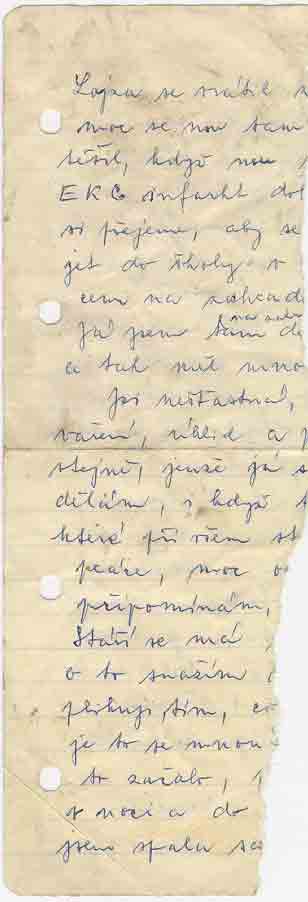 Lojza se vrátil
moc se mu tam
těšil, když mu
EKG infarkt
si přejeme, aby se
jet do školy v
cem na zahrad
na
Já jsem tam
a tak mít mno
Jsi nešťastná,
vaření, úklid a
stejně, jenže já s
dělám, i když
které při všem st
péče, moc
připomínám,
Stáří se má
o to snažím
, tím, co
je to se mnou
to začalo,
v noci a do
jsem spala